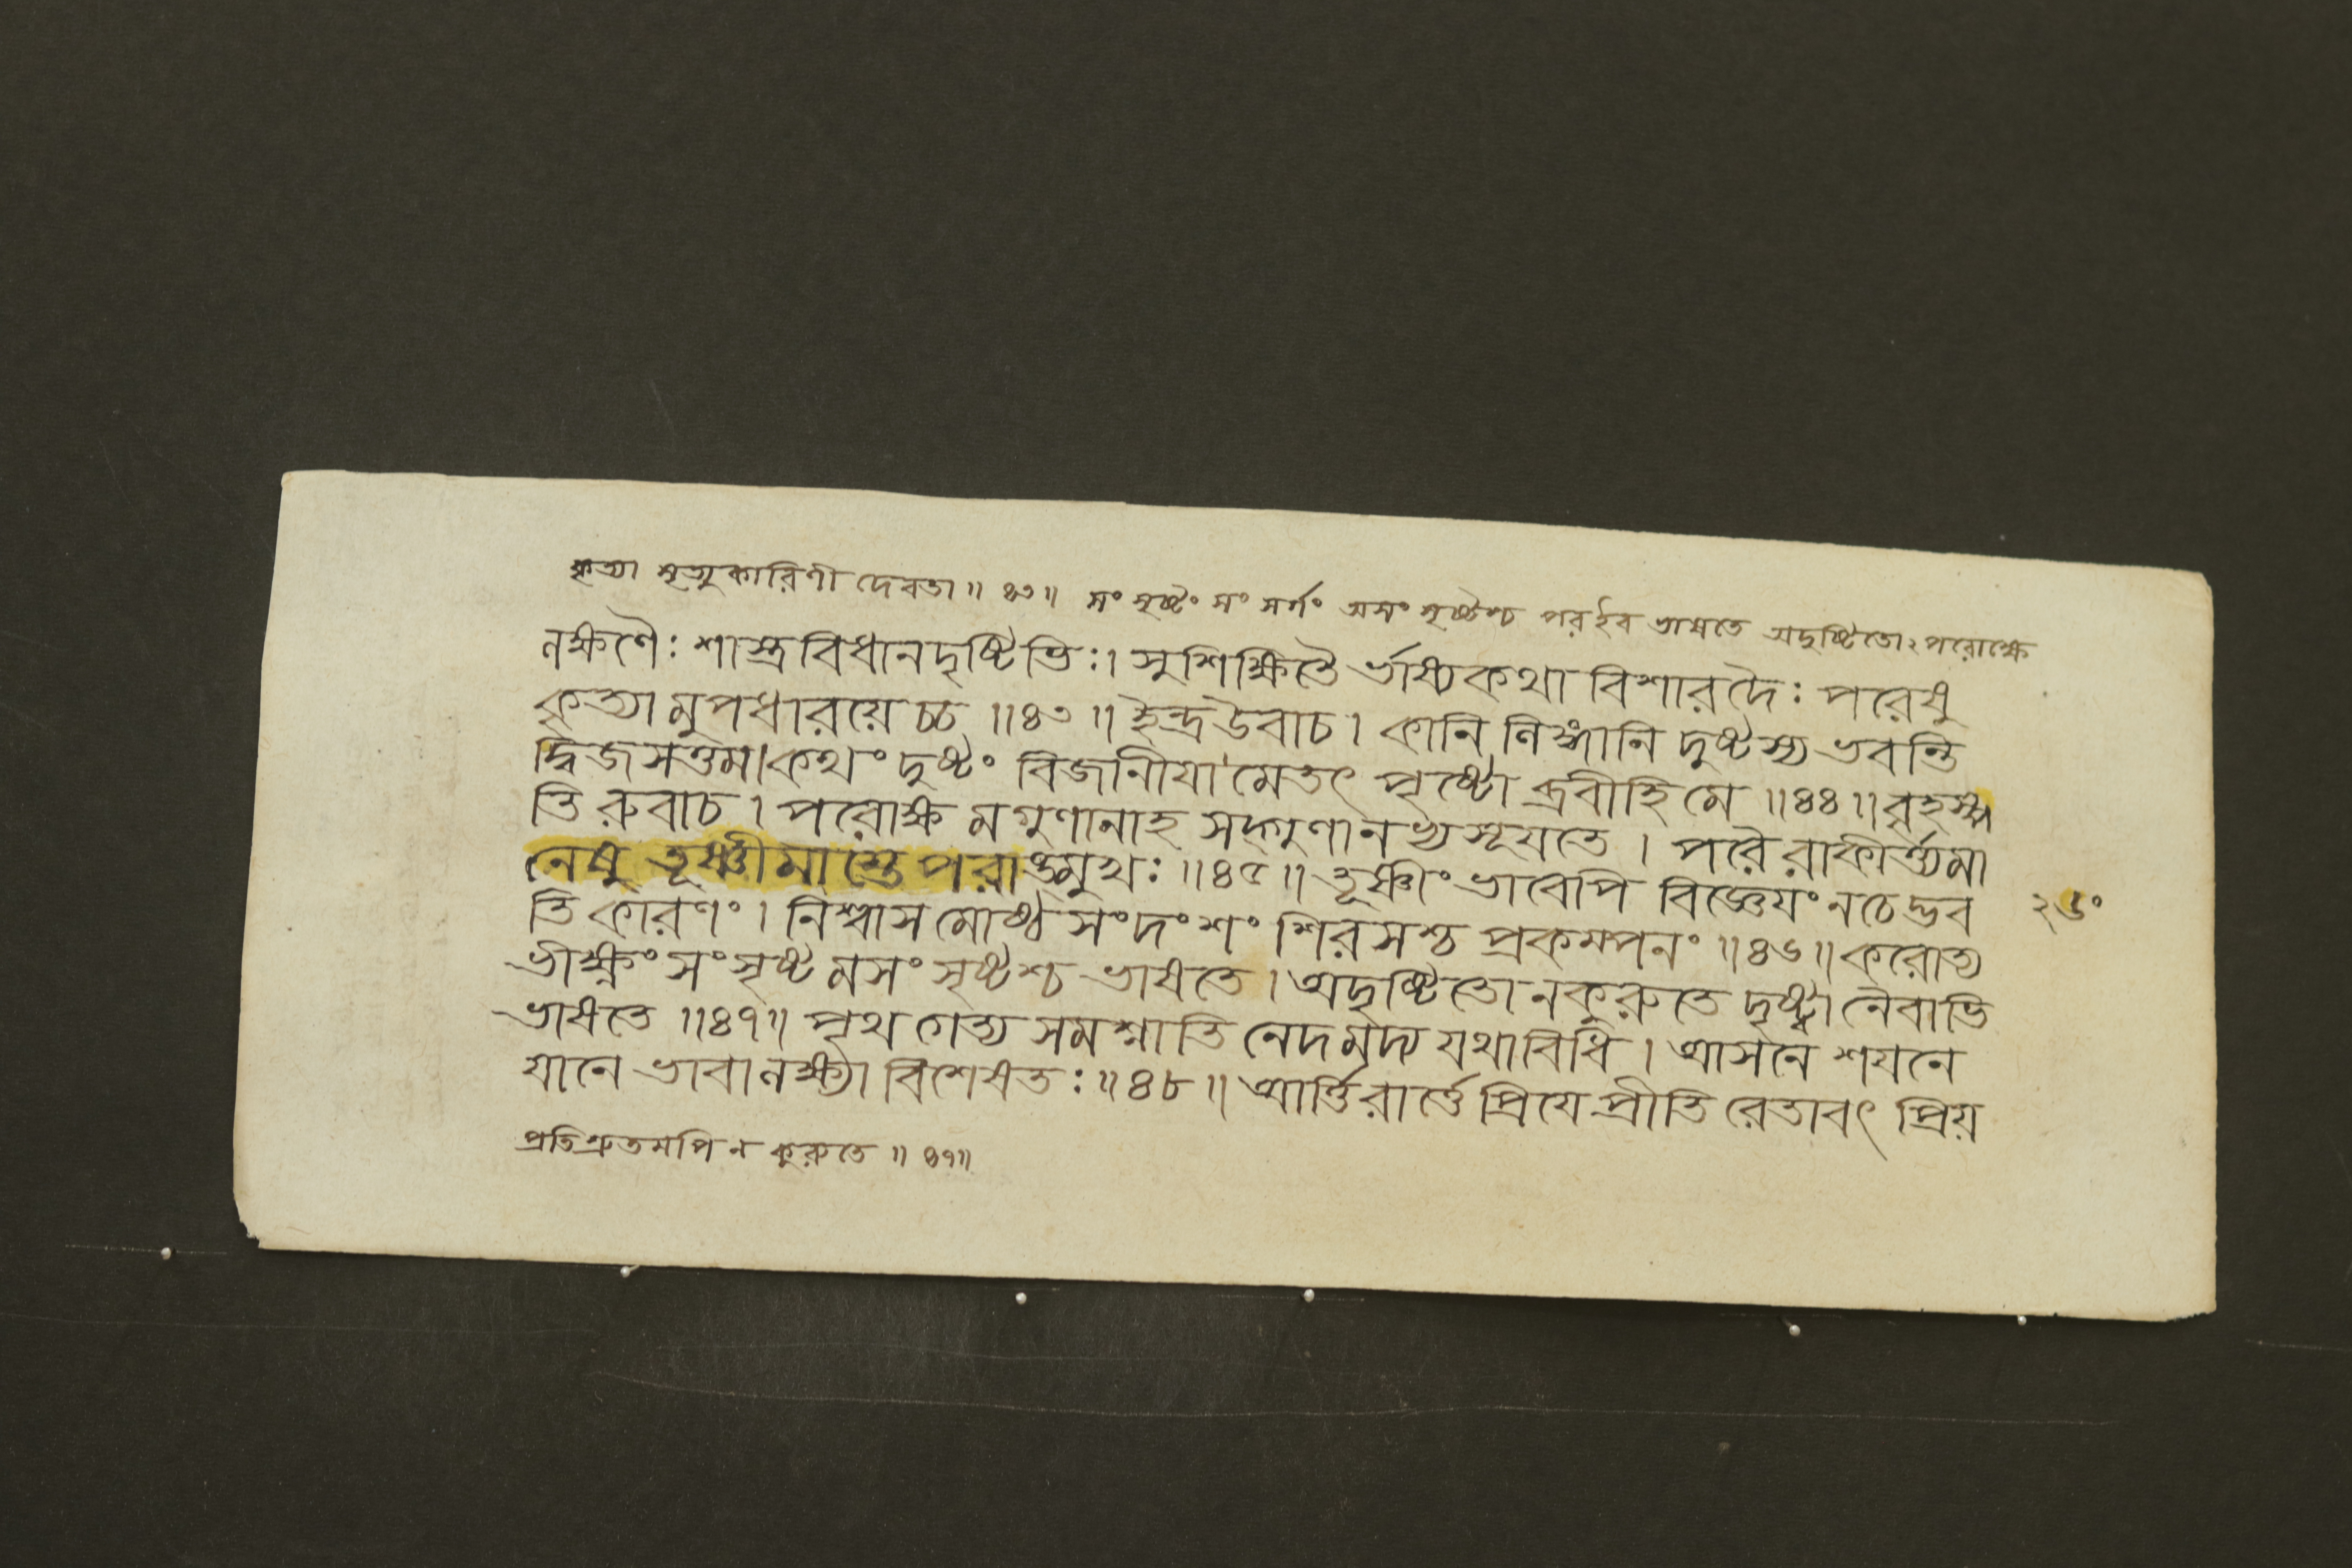 কৃত্যা মৃত্যুকারিণী দেবতা ॥ ৪৩ ॥ সংসৃষ্টং সংসর্গং অসংসৃষ্টশ্চ পর ইব ভাষতে অদৃষ্টিতোঽপরোক্ষে
লক্ষণৈঃ শাস্ত্রবিধানদৃষ্টিভিঃ। সুশিক্ষিতৈর্ভাষ্যকথা বিশারদৈঃ পরেষু
কৃত্যামুপধারয়েচ্চ ॥৪৩॥ ইন্দ্র উবাচ। কানি লিঙ্গানি দুষ্টস্য ভবন্তি
দ্বিজসত্তম। কথং দুষ্টং বিজানীযামেতৎ পৃষ্টো ব্রবীহি মে ॥৪৪॥ বৃহস্প
তিরুবাচ। পরোক্ষমগুণানাহ সদ্গুণানভ্যসূযতে। পরৈরাকীর্ত্ত্যমা
নেষু তূষ্ণীমাস্তে পরাঙ্মুখঃ ॥৪৫॥ তূষ্ণীংভাবেপি বিজ্ঞেযং নচেদ্ভব
তি কারণং। নিশ্বাসমোষ্ঠসংদংশং শিরসশ্চ প্রকম্পনং ॥৪৬॥ করোত্য
ভীক্ষ্ণং সংসৃষ্টমসংসৃষ্টশ্চ ভাষতে। অদৃষ্টিতো ন কুরুতে দৃষ্ট্বা নৈবাভি
ভাষতে ॥৪৭॥ পৃথগেত্য সমশ্নাতি নেদমদ্য যথাবিধি। আসনে শযনে
যানে ভাবা লক্ষ্যা বিশেষতঃ ॥৪৮॥ আর্ত্তিরার্ত্তে প্রিযে প্রীতিরেতাবৎ প্রিয়
প্রতিশ্রুতমপি ন কুরুতে ॥ ৪৭॥